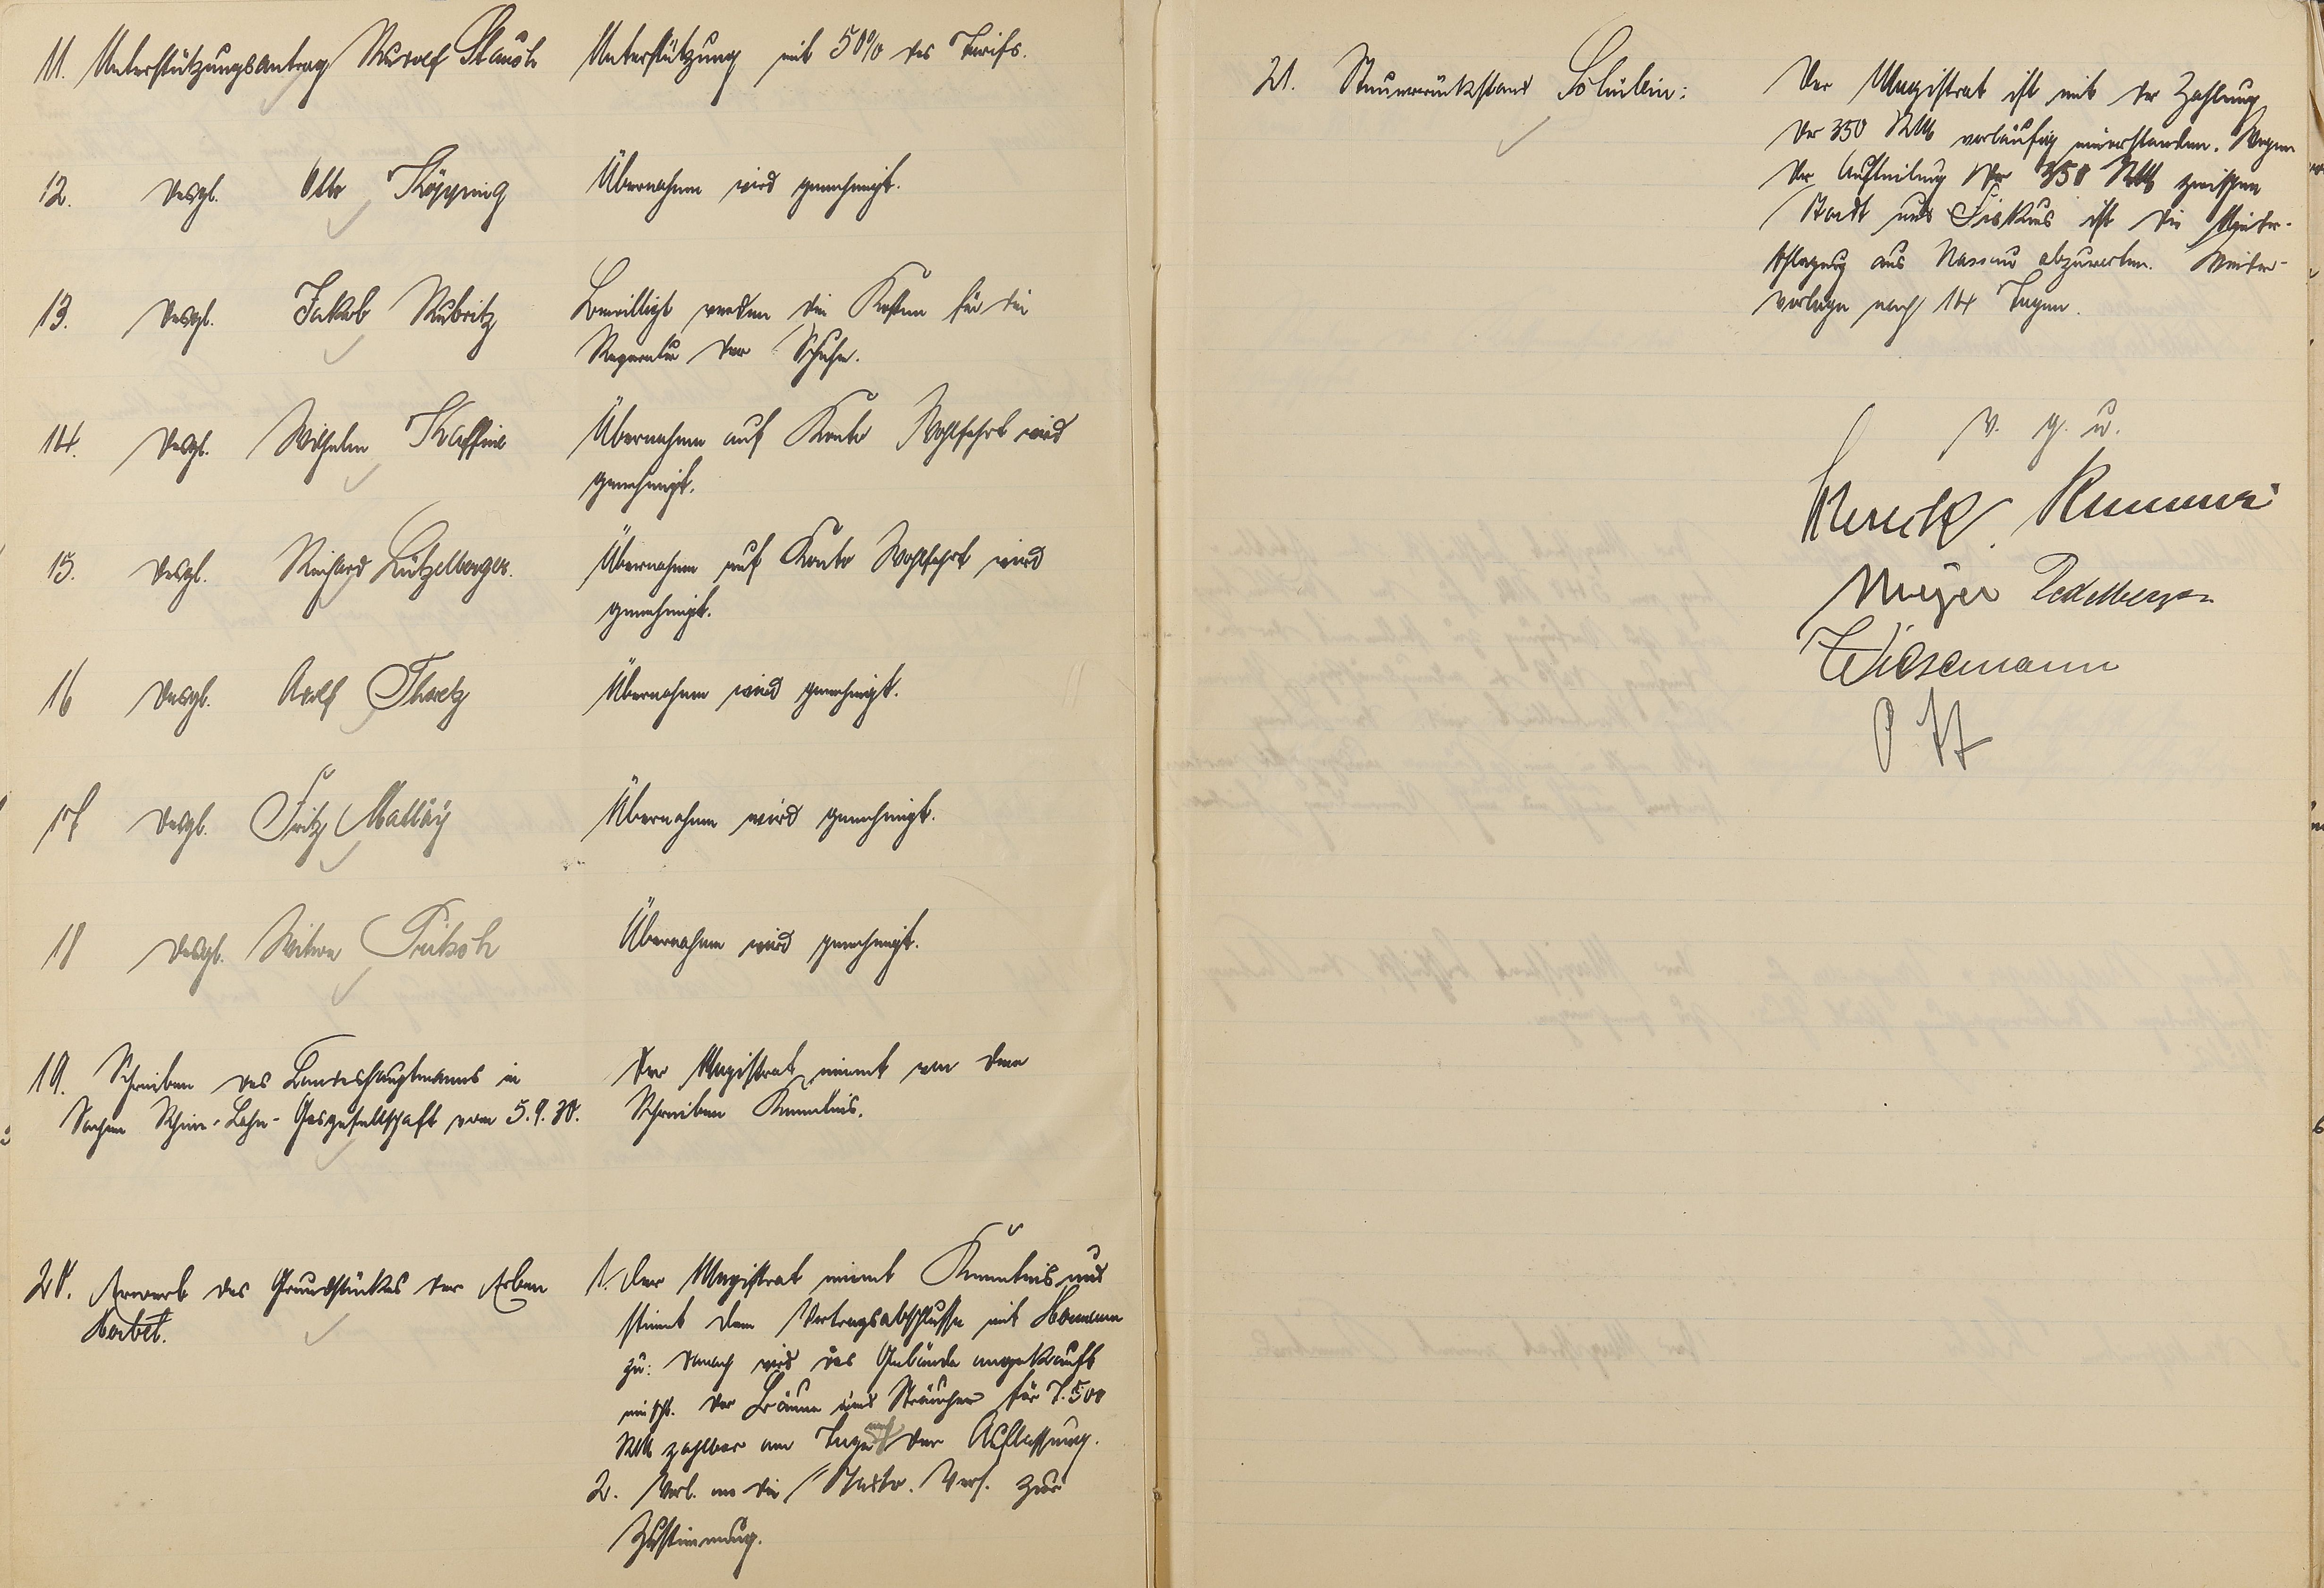 11. Unterstützungsantrag Rudolf Stausch
Unterstützung mit 50% des Tarifs.
12. Desgl. Otto Köpping
Übernahme wird genehmigt.
13. Desgl. Jakob Rubritz
Bewilligt werden die Kosten für die
Reparatur der Schuhe.
14. Desgl. Wilhelm Kaffine
Übernahme auf Konto Wohlfahrt wird
genehmigt.
15. Desgl. Richard Lützelberger.
Übernahme auf Konto Wohlfahrt wird
genehmigt.
16 Desgl. Adolf Tharetz
Übernahme wird genehmigt.
17 Desgl. Fritz Malläy
Übernahme wird genehmigt.
18 Desgl. Witwe Fritsch
Übernahme wird genehmigt.
19. Schreiben des Landeshauptmanns in
Sachen Rhein-Lahn-Gasgesellschaft vom 5.9.30.
Der Magistrat nimmt von dem
Schreiben Kenntnis.
20. Erwerb des Grundstückes der Erben
Herbel.
1. Der Magistrat nimmt Kenntnis und
stimmt dem Vertragsabschlusse mit
zu: Danach wird das Gebäude angekauft
einschl. der Bäume und Sträucher für 7.500
RM zahlbar am Tage nach der Auflassung.
2. Vorl. an die Stadtv. Vers. zur
Zustimmung.
21. Steuerrückstand
Der Magistrat ist mit der Zahlung
der 350 RM vorläufig einverstanden. Wegen
der Aufteilung der 350 RM zwischen
Stadt und Fiskus ist die
aus Nassau abzuwarten. Wieder-
vorlage nach 14 Tagen.
v. g. u.
Meyer
Wiesemann